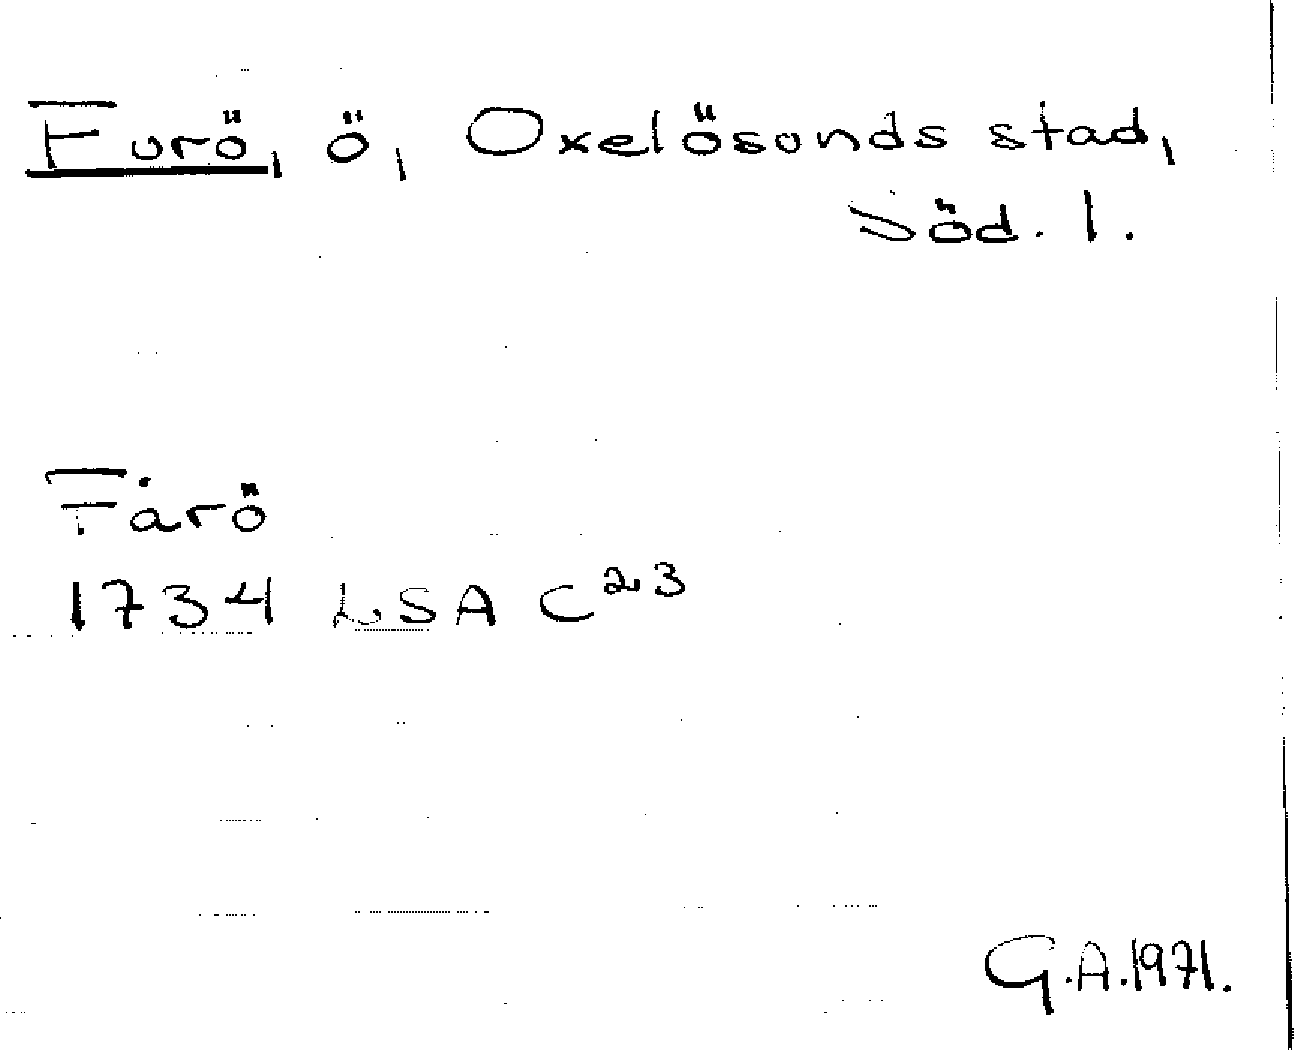 Furö, ö, Oxelösunds stad,
Söd. l.
Fårö
1734 LSA C²³
G.A.1971.